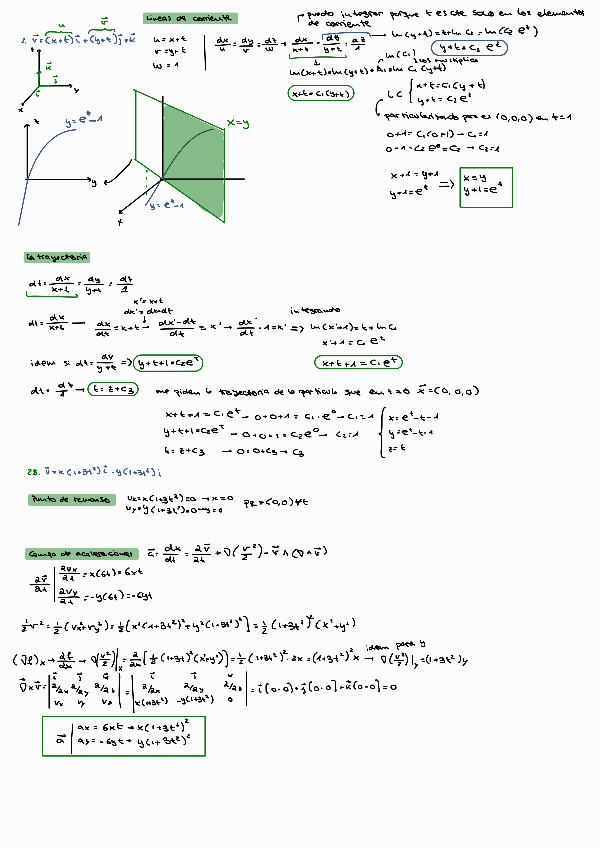 Líneas de corriente
2. v⃗=(x+t)i⃗+(y+t)j⃗+k⃗
u = x+t
v = y+t
w = 1
dx/u = dy/v = dz/w → dx/x+t = dy/y+t = dz/1
puedo integrar porque t está solo en los elementos de corriente
ln(y+t)=z+ln C₂=ln(C₂ eᶻ)
y+t=C₂ eᶻ
ln(x+t)=ln(y+t)+ln C₁(y+t)
x+t=C₁(y+t)
LC { x+t=C₁(y+t)
y+t=C₂ eᶻ
particularizando para el (0,0,0) en t=1
0+1=C₁(0+1)→C₁=1
0+1=C₂e⁰=C₂→C₂=1
x+1=y+1
y+1=eᶻ
⇒
x=y
y+1=eᶻ
y=eᶻ-1
x=y
y=eᶻ-1
La trayectoria
dt = dx/x+t = dy/y+t = dz/1
x'=x+t
dx'=dx+dt
dt = dx/x+t → dx/dt = x+t → dx'-dt/dt = x' → dx'/dt -1=x' ⇒ ln(x'+1)=t+ln C₁
integrando
x'+1=C₁eᵗ
idem si dt = dy/y+t ⇒ y+t+1=C₂eᵗ
x+t+1=C₁eᵗ
dt = dz/1 → t=z+C₃
me piden la trayectoria de la partícula que en t=0 x⃗=(0,0,0)
x+t+1=C₁eᵗ→0+0+1=C₁·e⁰→C₁=1
y+t+1=C₂eᵗ→0+0+1=C₂e⁰→C₂=1
t=z+C₃→0=0+C₃→C₃
x=eᵗ-t-1
y=eᵗ-t-1
z=t
28. v⃗=x(1+3t²)i⃗-y(1+3t²)j⃗
Punto de remanso
vx=x(1+3t²)=0→x=0
vy=y(1+3t²)=0→y=0
PR=(0,0)∀t
Campo de aceleraciones
a⃗ = dx/dt = ∂v⃗/∂t + ∇(v²/2) - v⃗∧(∇∧v⃗)
∂v⃗/∂t | ∂vx/∂t = x(6t)=6xt
∂vy/∂t = -y(6t)=-6yt
½v²=½(vx²+vy²)=½[x²(1+3t²)²+y²(1+3t²)²]=½(1+3t²)²(x²+y²)
idem para y
(∇f)x→∂f/∂x→∇(v²/2)|x=∂/∂x[½(1+3t²)²(x²+y²)]=½(1+3t²)²·2x=(1+3t²)²x→∇(v²/2)|y=(1+3t²)y
∇×v⃗=|i⃗ j⃗ k⃗ ∂/∂x ∂/∂y ∂/∂z vx vy vz|=|i⃗ j⃗ k⃗ ∂/∂x ∂/∂y ∂/∂z x(1+3t²) -y(1+3t²) 0|=i⃗[0-0]+j⃗[0-0]+k⃗[0-0]=0
a⃗ | ax=6xt+x(1+3t²)²
ay=-6yt+y(1+3t²)²